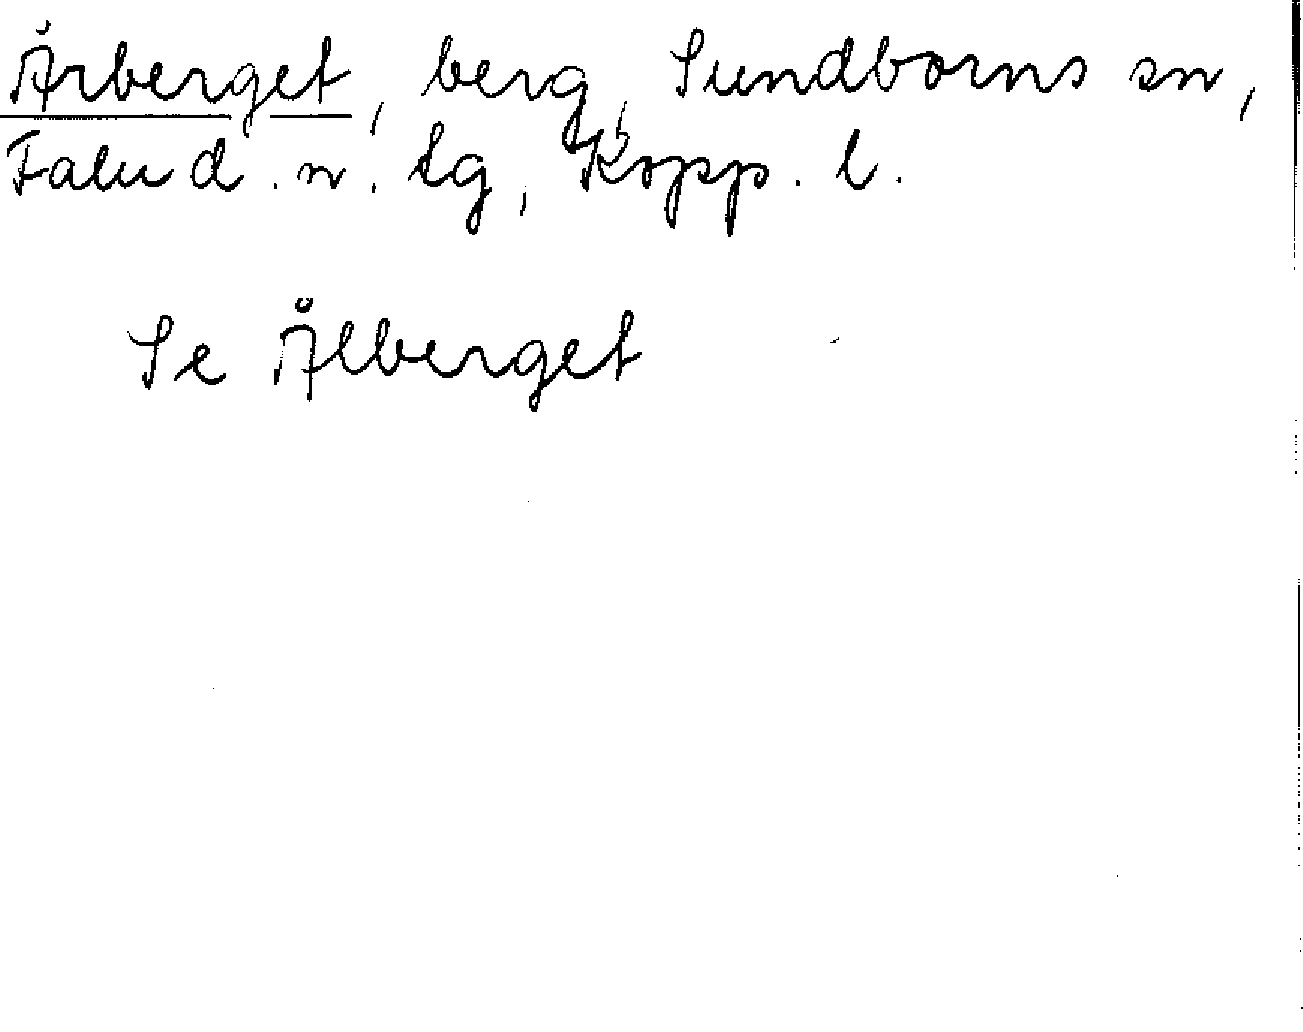 Årberget, berg, Sundborns sn,
Falu d. n. tg, Kopp. l.
Se Ålberget